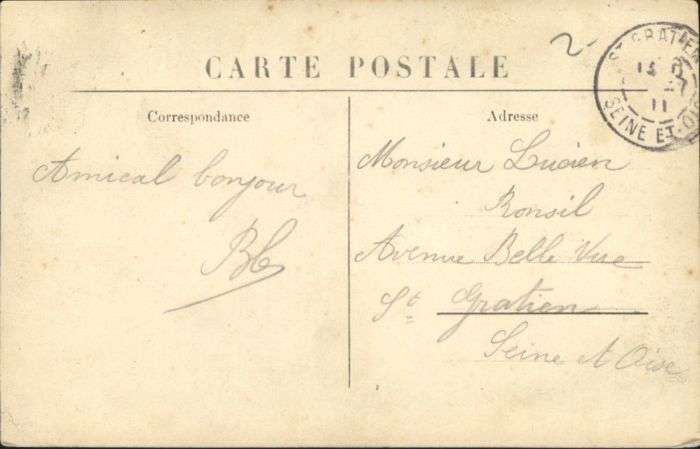 CARTE POSTALE
Correspondance
Amical bonjour
Adresse
Monsieur Lucien
Ronsil
Avenue Belle Vue
St Gratien
Seine et Oise
2
ST GRATIEN
11
SEINE ET-OI